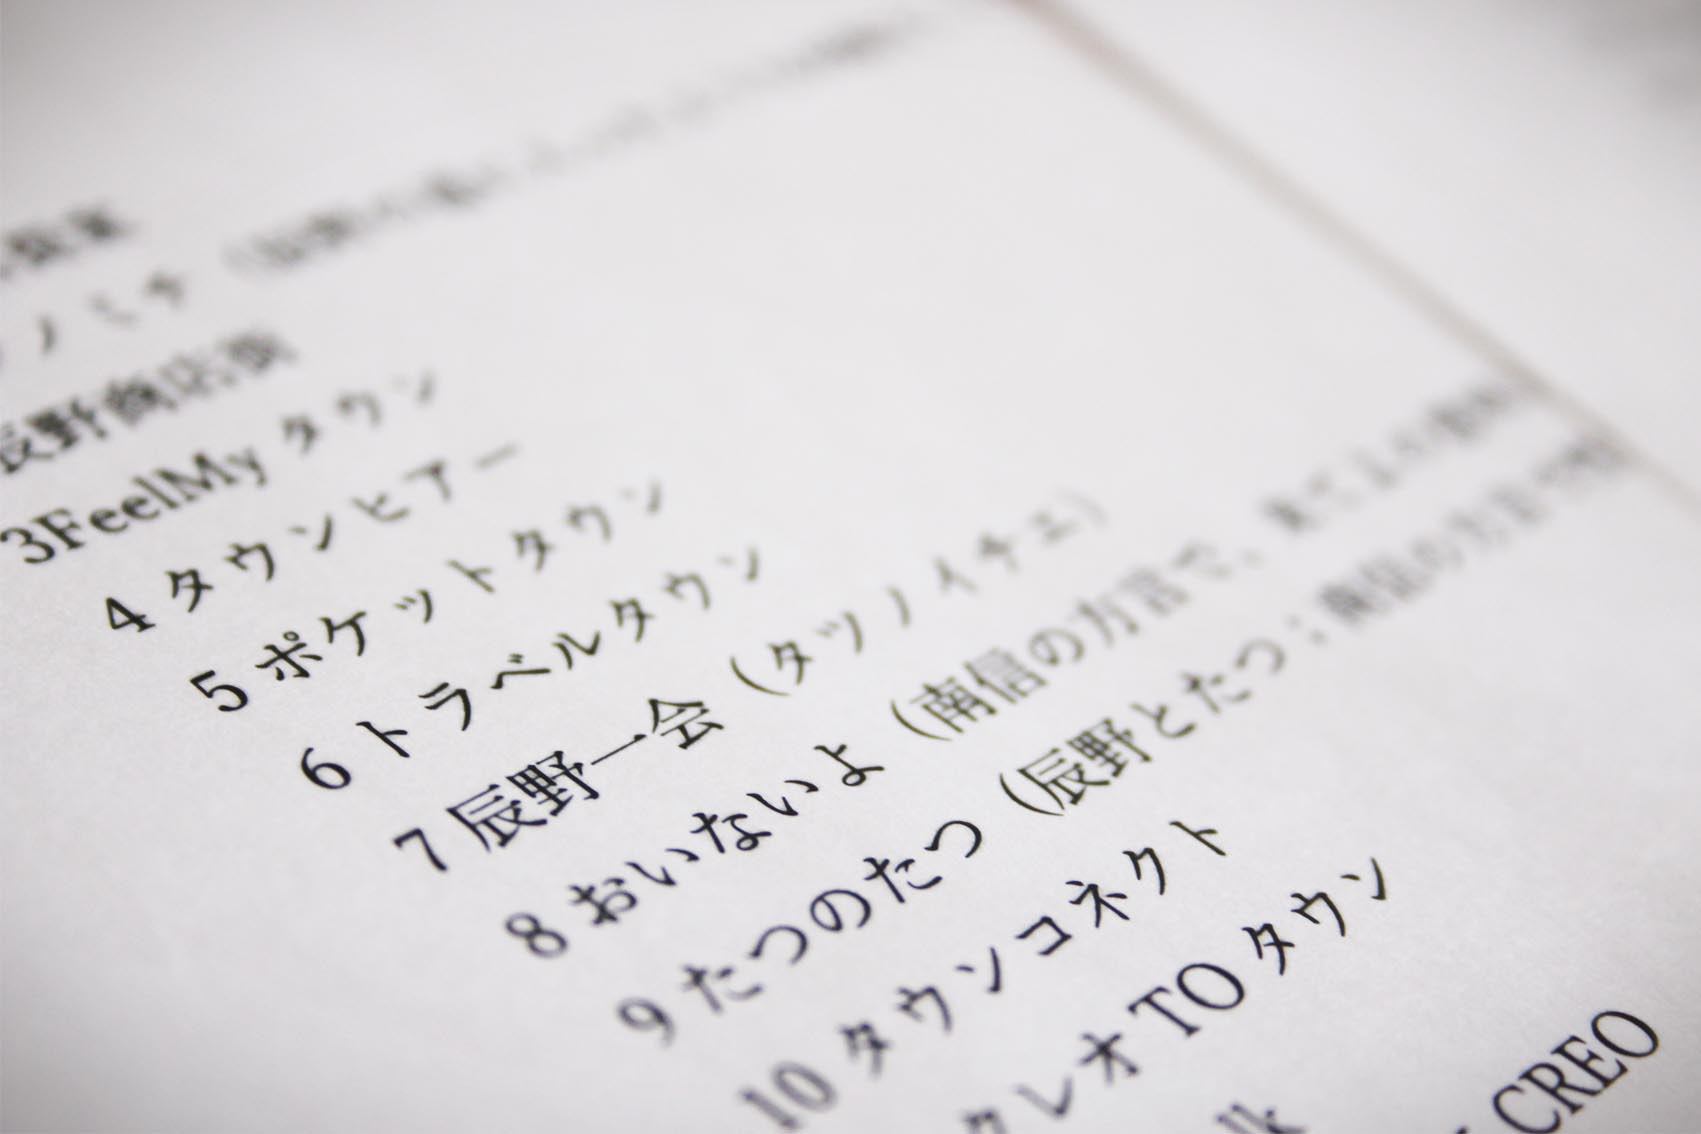 ノミチ
辰野商店街
3FeelMyタウン
4タウンヒアー
5ポケットタウン
6トラベルタウン
7辰野一会（タツノイチエ）
8おいないよ（南信の方言で、来て
9たつのたつ（辰野とたつ；南信の方言で
10タウンコネクト
クレオTOタウン
CREO